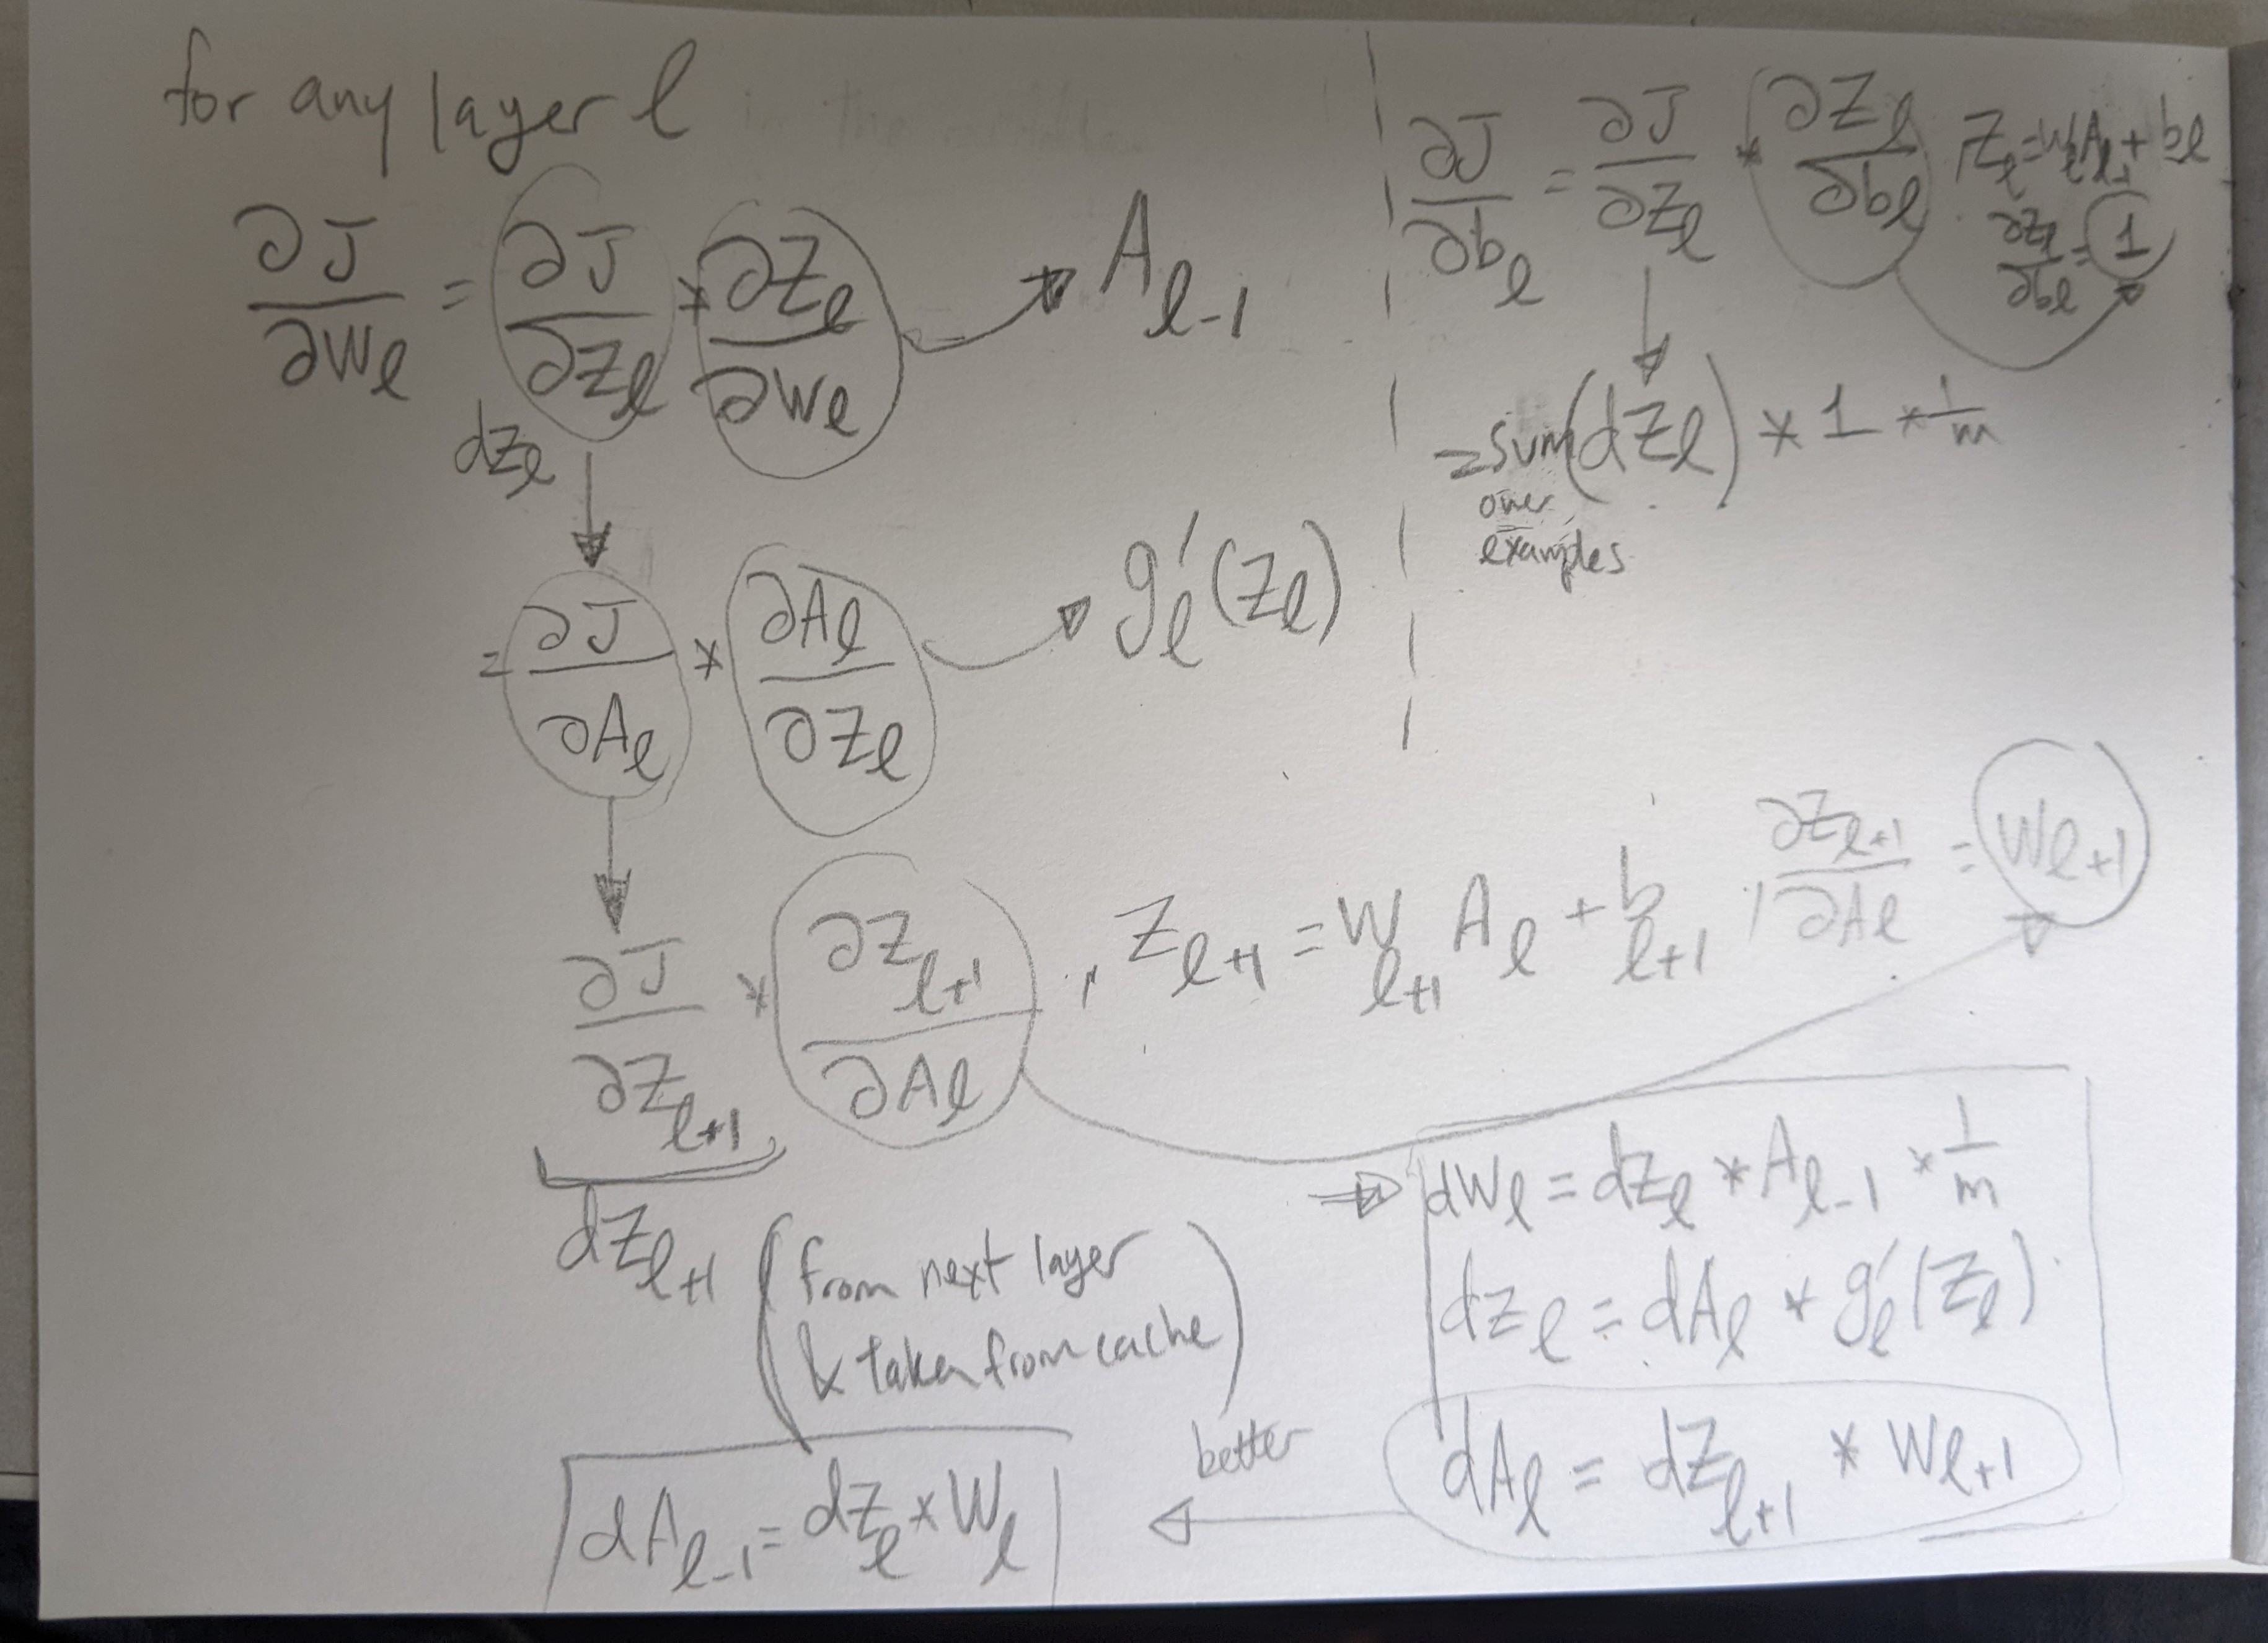 for any layer ℓ in the middle
∂J/∂Wℓ = ∂J/∂Zℓ * ∂Zℓ/∂Wℓ → Aℓ-1
dZℓ
= ∂J/∂Aℓ * ∂Aℓ/∂Zℓ → g'ℓ(Zℓ)
∂J/∂Zℓ+1 * ∂Zℓ+1/∂Aℓ , Zℓ+1 = Wℓ+1 Aℓ + bℓ+1 , ∂Zℓ+1/∂Aℓ = Wℓ+1
dZℓ+1 (from next layer
& taken from cache)
∂J/∂bℓ = ∂J/∂Zℓ * ∂Zℓ/∂bℓ , Zℓ = WℓAℓ-1 + bℓ
∂Zℓ/∂bℓ = 1
= sum(dZℓ) * 1 * 1/m
over
examples
⇒ dWℓ = dZℓ * Aℓ-1 * 1/m
dZℓ = dAℓ * g'ℓ(Zℓ)
dAℓ = dZℓ+1 * Wℓ+1
better
dAℓ-1 = dZℓ * Wℓ